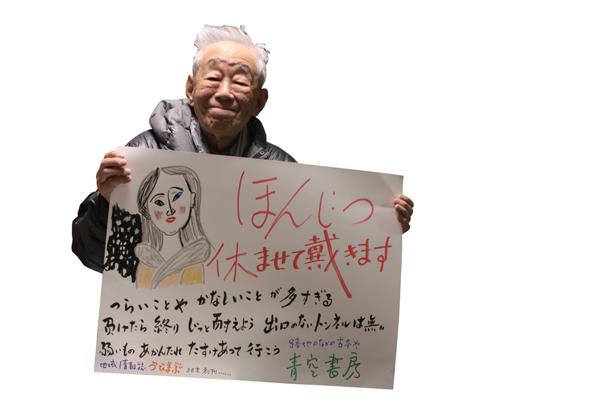 ほんじつ
休ませて戴きます
つらいことや かなしいことが多すぎる
負けたら終り じっと耐えよう 出口のないトンネルは無い
弱いもの あかんたれ たすけあって 行こう
古本や
青空書房
地域情報誌 うひまぶ